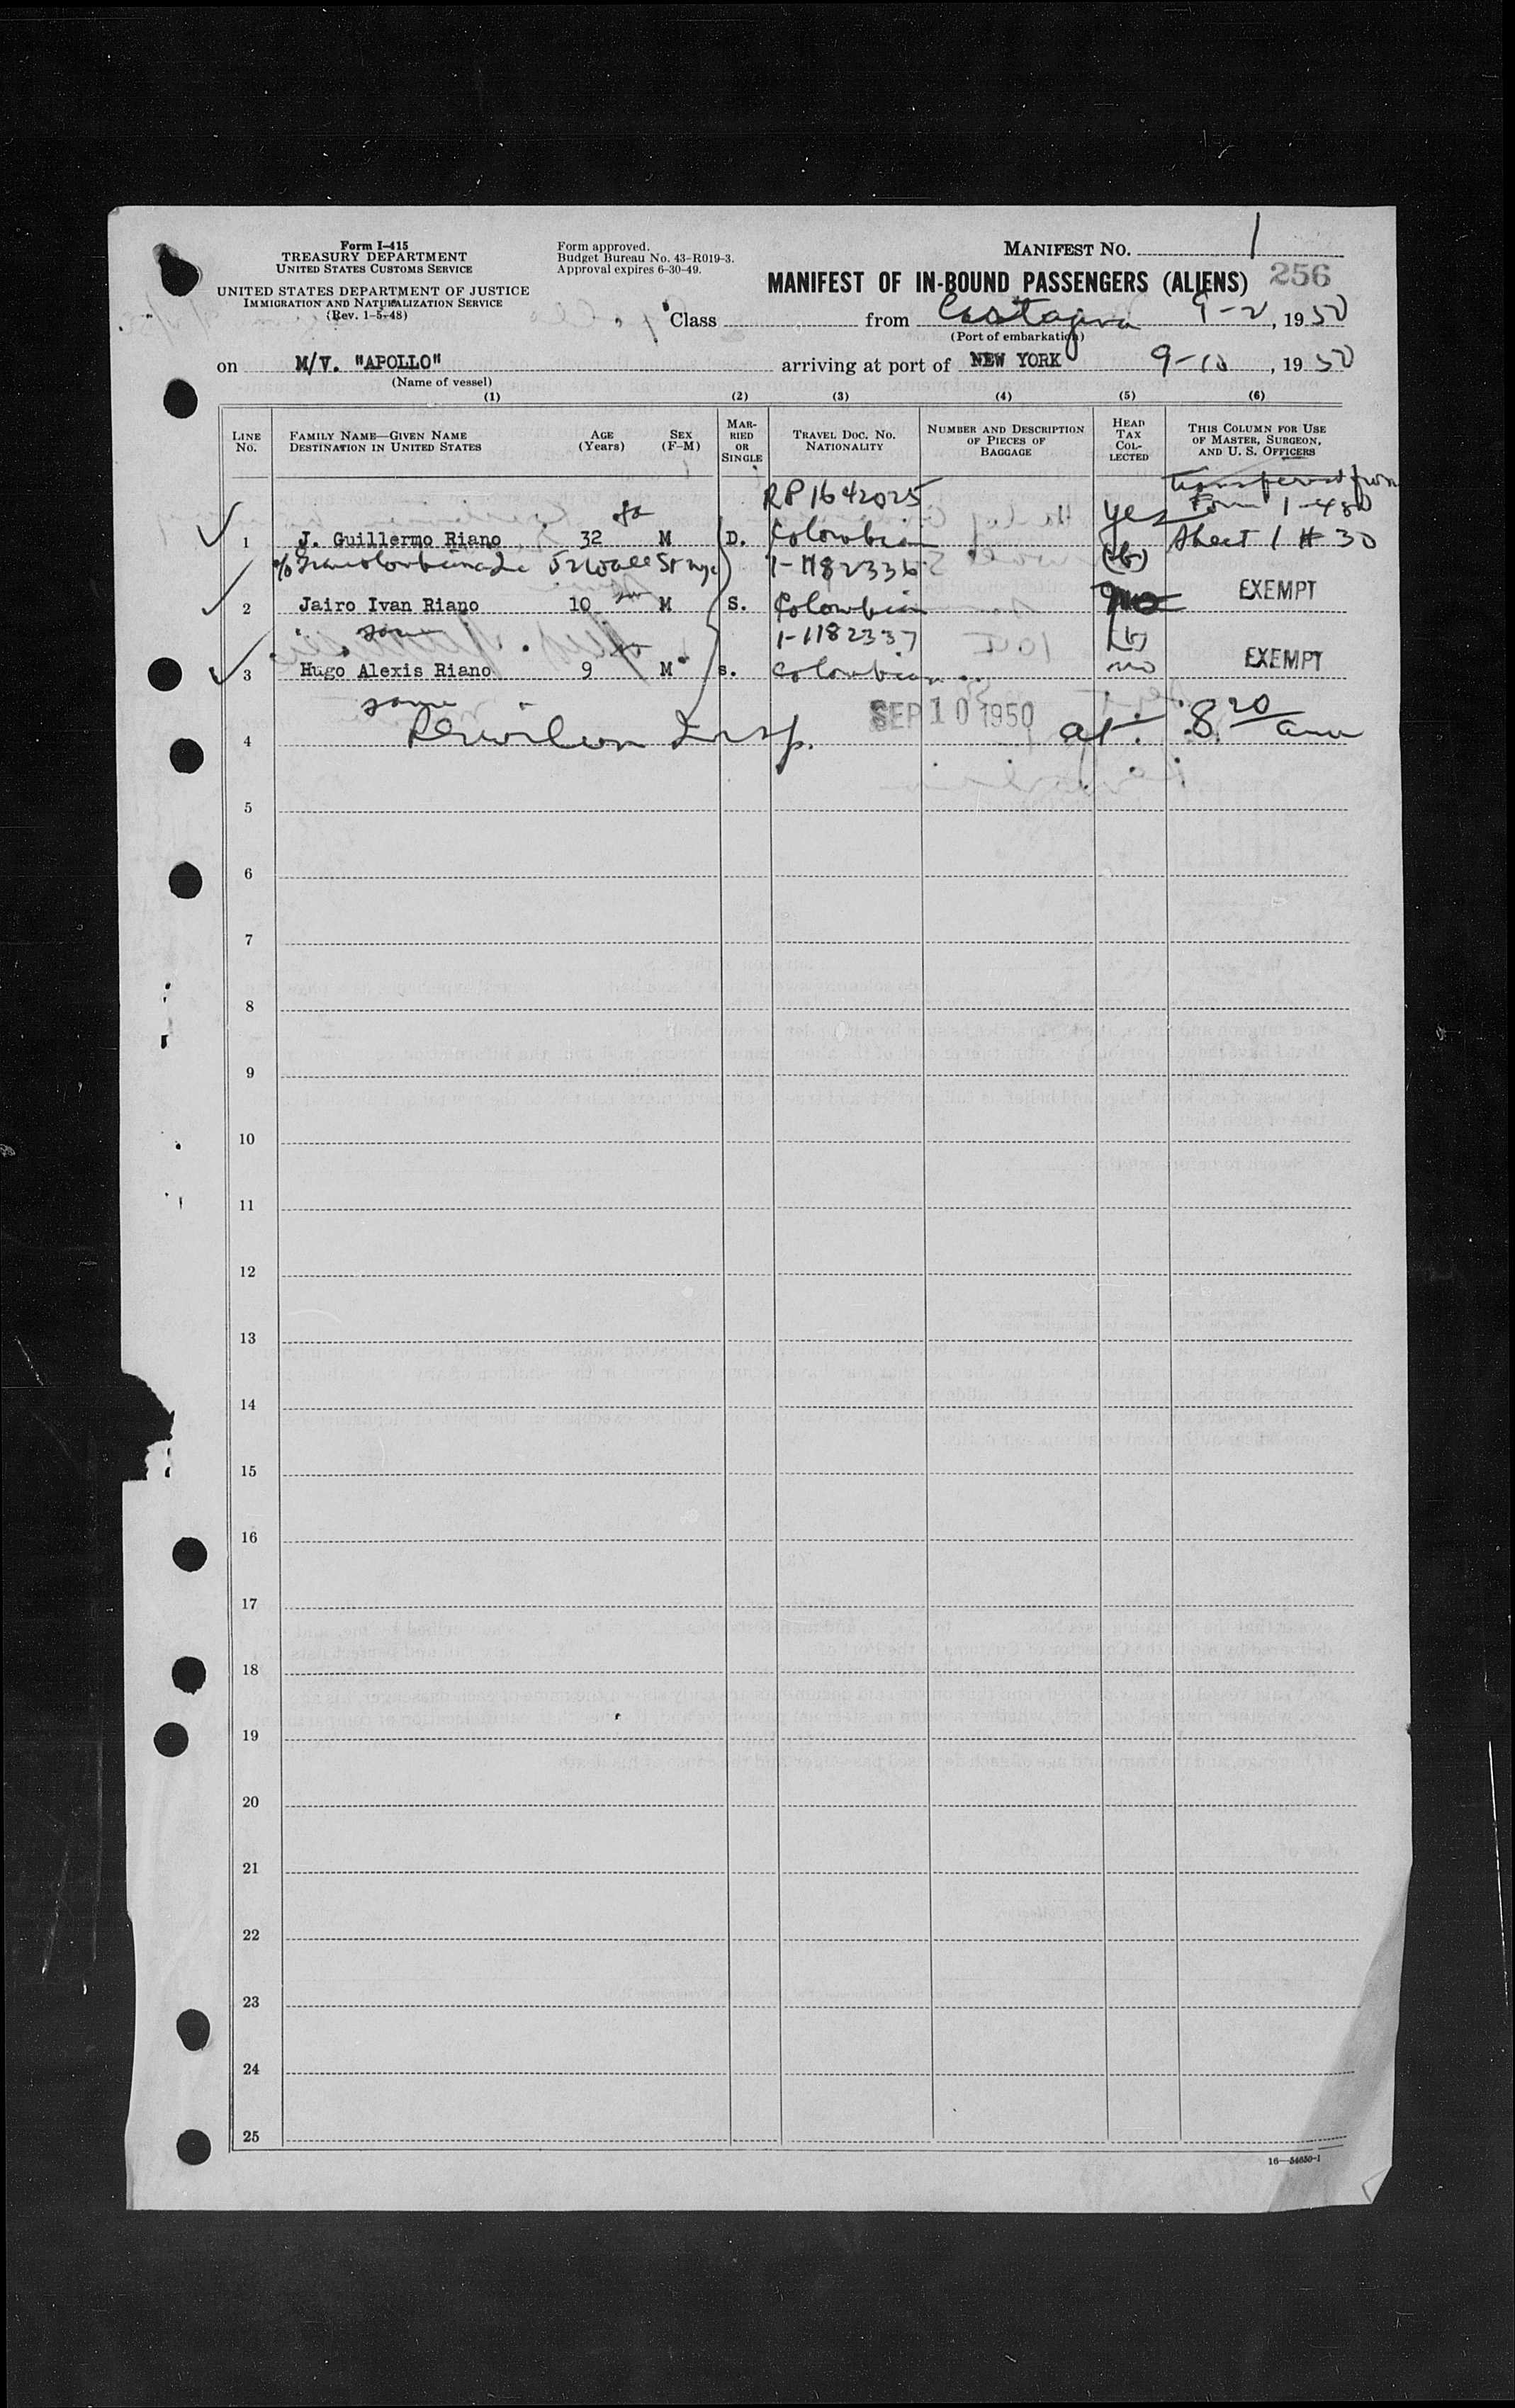 Form I-415
TREASURY DEPARTMENT
UNITED STATES CUSTOMS SERVICE
UNITED STATES DEPARTMENT OF JUSTICE
IMMIGRATION AND NATURALIZATION SERVICE
(Rev. 1-5-48)
Form approved.
Budget Bureau No. 43-R019-3.
Approval expires 6-30-49.
MANIFEST NO. 1
MANIFEST OF IN-BOUND PASSENGERS (ALIENS) 256
Class from Cartagena 9-2, 1950
(Port of embarkation)
on M/V. "APOLLO" arriving at port of NEW YORK 9-10, 1950
(Name of vessel)
(1) (2) (3) (4) (5) (6)
LINE No.
FAMILY NAME—GIVEN NAME
DESTINATION IN UNITED STATES
AGE (Years)
SEX (F-M)
MARRIED OR SINGLE
TRAVEL DOC. NO.
NATIONALITY
NUMBER AND DESCRIPTION OF PIECES OF BAGGAGE
HEAD TAX COLLECTED
THIS COLUMN FOR USE OF MASTER, SURGEON, AND U. S. OFFICERS
RP 1642025 transferred from
yes Form I-480
1 J. Guillermo Riano 32 M D. Colombian Sheet 1 # 30
52 Wall St nyc 1-1182336
2 Jairo Ivan Riano 10 M S. Colombian EXEMPT
same 1-1182337
3 Hugo Alexis Riano 9 M s. Colombian no EXEMPT
same
4 Insp. SEP 10 1950 at 8 20 am
5
6
7
8
9
10
11
12
13
14
15
16
17
18
19
20
21
22
23
24
25
16—54650-1